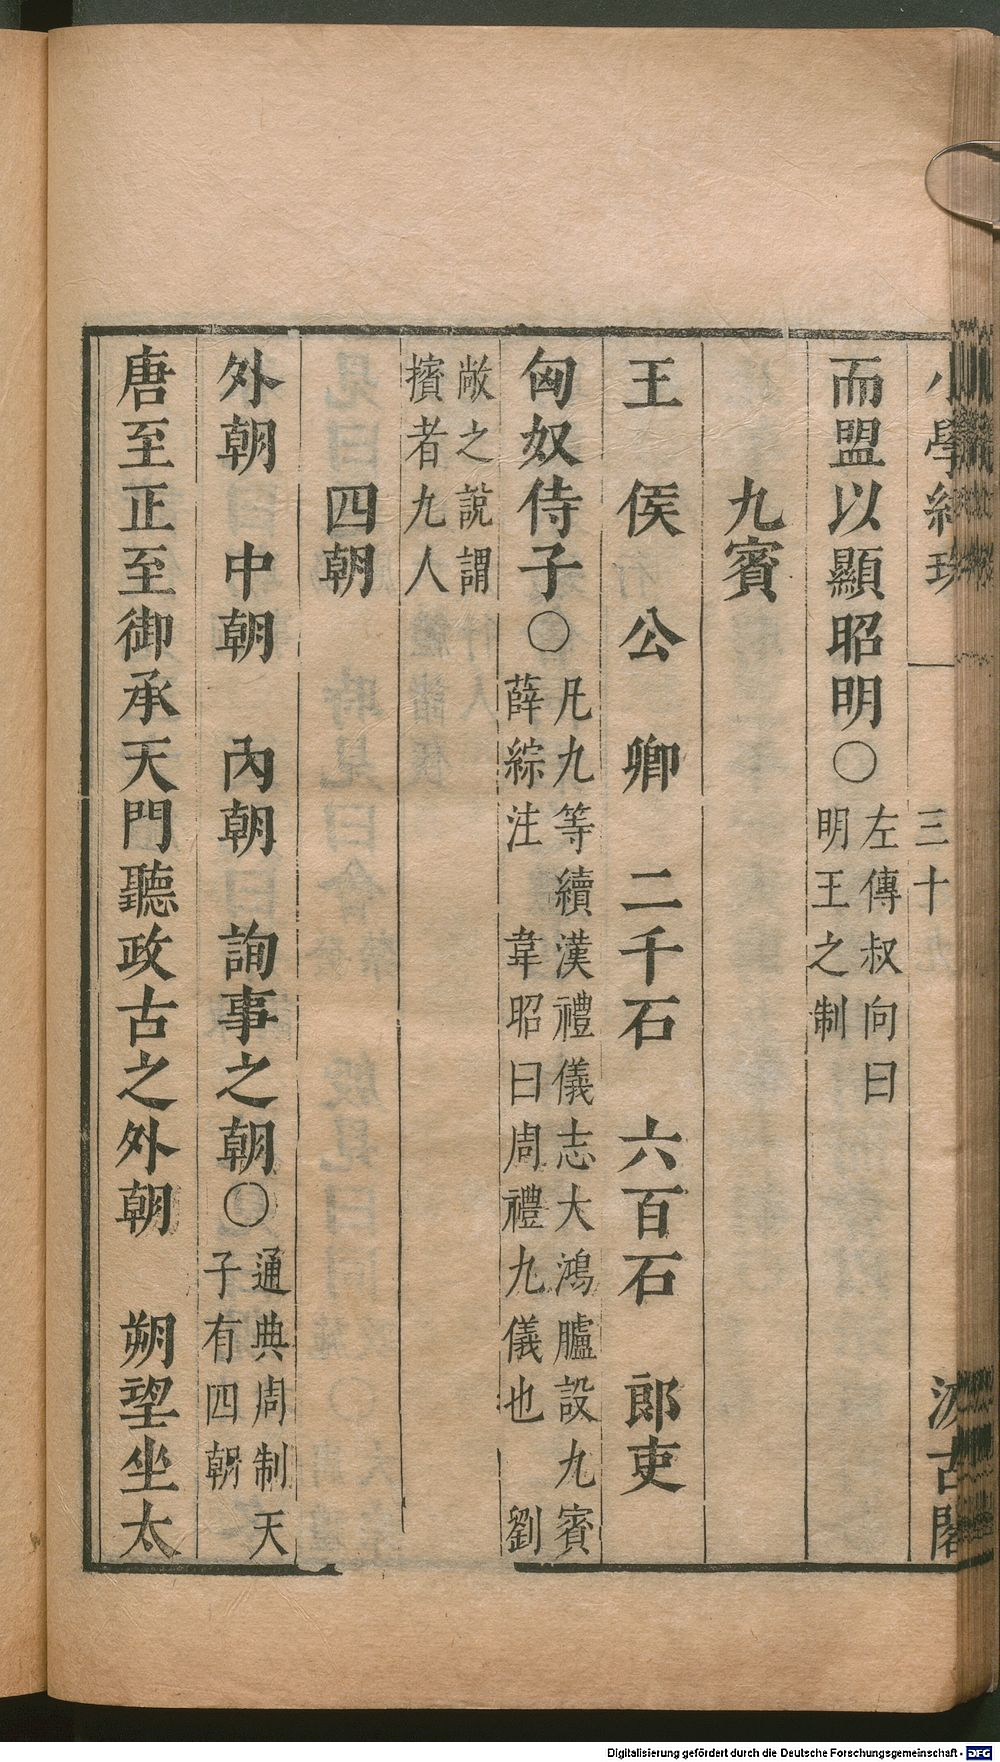 小學紺珠 三十九 汲古閣
而盟以顯昭明〇左傳叔向曰
明王之制
九賓
王 侯 公 卿 二千石 六百石 郎吏
匈奴侍子〇凡九等續漢禮儀志大鴻臚設九賓
薛綜注 韋昭曰周禮九儀也 劉
敞之說謂
擯者九人
四朝
外朝 中朝 內朝 詢事之朝〇通典周制天
子有四朝
唐至正至御承天門聽政古之外朝 朔望坐太
Digitalisierung gefördert durch die Deutsche Forschungsgemeinschaft - DFG